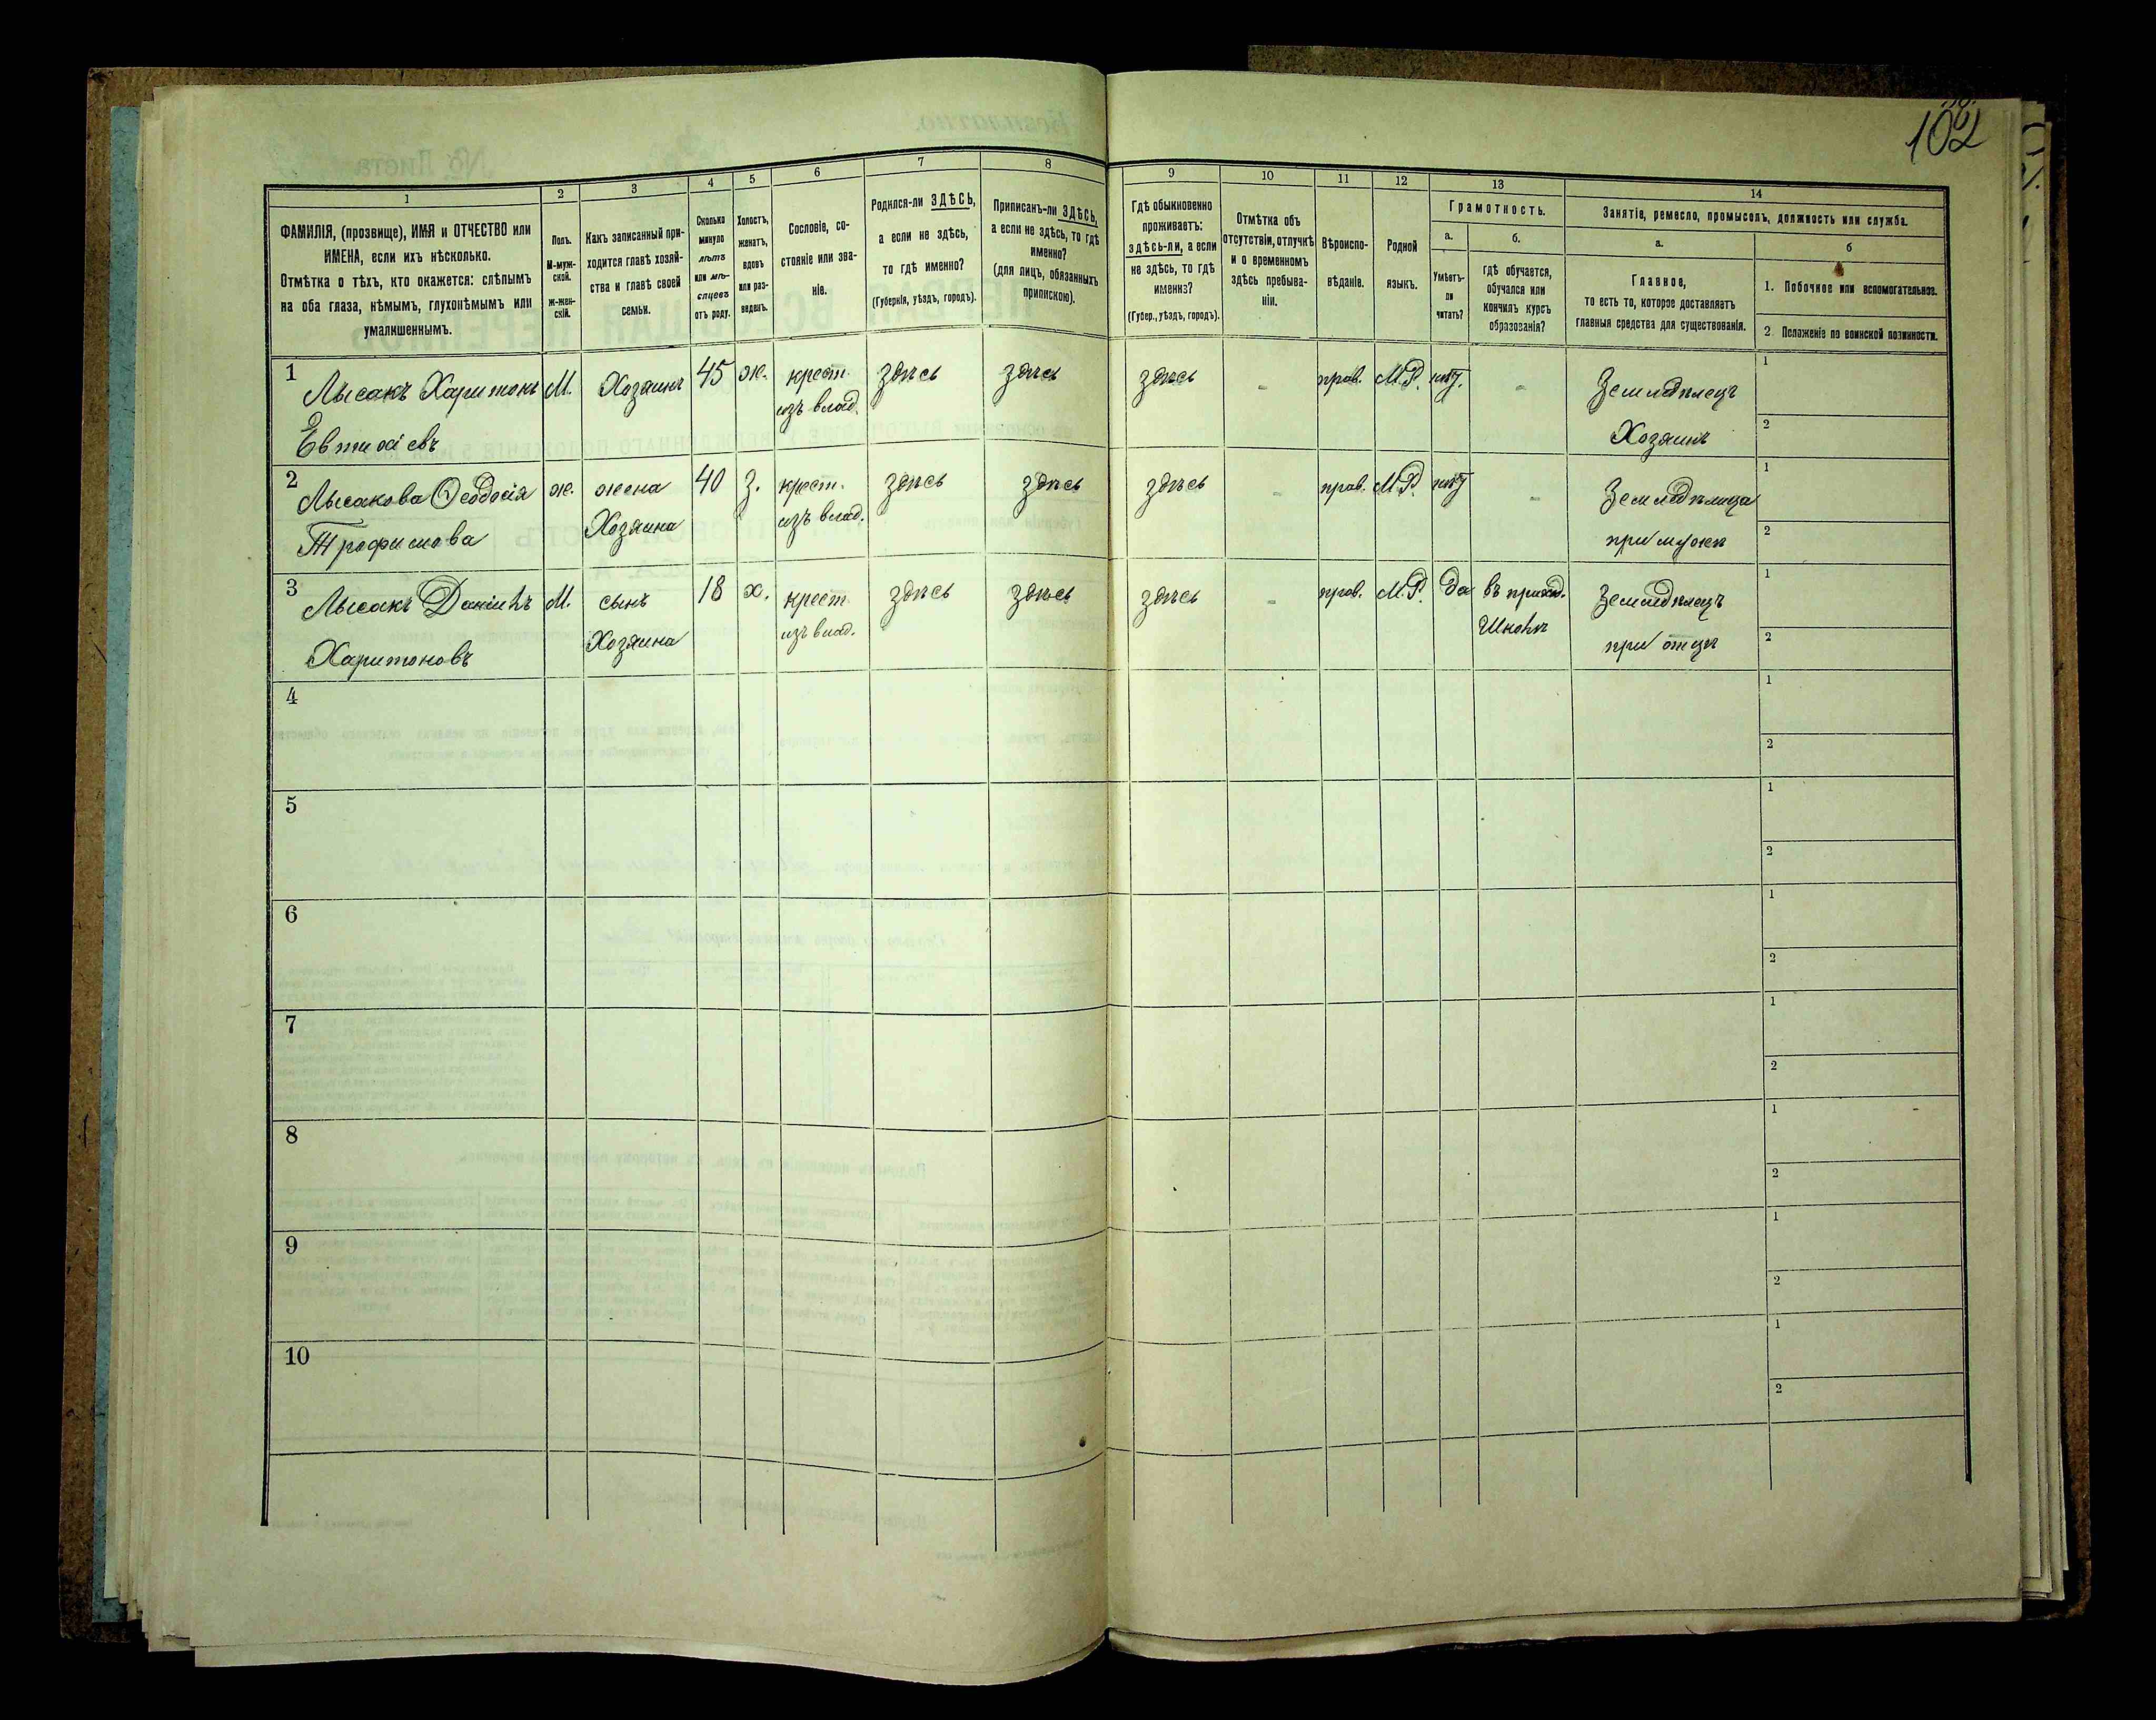 102
1
2
3
4
5
6
7
8
9
10
11
12
13
14
ФАМИЛІЯ, (прозвище), ИМЯ и ОТЧЕСТВО или
ИМЕНА, если ихъ нѣсколько.
Отмѣтка о тѣхъ, кто окажется: слѣпымъ
на оба глаза, нѣмымъ, глухонѣмымъ или
умалишеннымъ.
Полъ.
М-муж-
ской.
Ж-жен-
скій.
Какъ записанный при-
ходится главѣ хозяй-
ства и главѣ своей
семьи.
Сколько
минуло
лѣтъ
или мѣ-
сяцевъ
отъ роду.
Холостъ,
женатъ,
вдовъ
или раз-
веденъ.
Сословіе, со-
стояніе или зва-
ніе.
Родился-ли ЗДѢСЬ,
а если не здѣсь,
то гдѣ именно?
(Губернія, уѣздъ, городъ).
Приписанъ-ли ЗДѢСЬ,
а если не здѣсь, то гдѣ
именно?
(для лицъ, обязанныхъ
припискою).
Гдѣ обыкновенно
проживаетъ:
здѣсь-ли, а если
не здѣсь, то гдѣ
именно?
(Губер., уѣздъ, городъ).
Отмѣтка объ
отсутствіи, отлучкѣ
и о временномъ
здѣсь пребыва-
ніи.
Вѣроиспо-
вѣданіе.
Родной
языкъ.
Грамотность.
а.
Умѣетъ-
ли
читать?
б.
гдѣ обучается,
обучался или
кончилъ курсъ
образованія?
Занятіе, ремесло, промыселъ, должность или служба.
а.
Главное,
то есть то, которое доставляетъ
главныя средства для существованія.
б
1. Побочное или вспомогательное.
2. Положеніе по воинской повинности.
1 Лысакъ Харитонъ М. Хозяинъ 45 ж. крест. здѣсь здѣсь здѣсь - прав. М.Р. нѣт. - Земледѣлецъ 1
Евтихіевъ изъ влад. Хозяинъ 2
2 Лысакова Ѳеодосія ж. жена 40 з. крест. здѣсь здѣсь здѣсь - прав. М.Р. нѣт - Земледѣлица 1
Трофимова Хозяина изъ влад. при мужѣ 2
3 Лысакъ Даніилъ М. сынъ 18 х. крест. здѣсь здѣсь здѣсь - прав. М.Р. Да въ приход. Земледѣлецъ 1
Харитоновъ Хозяина изъ влад. Школѣ при отцѣ 2
4 1
2
5 1
2
6 1
2
7 1
2
8 1
2
9 1
2
10 1
2